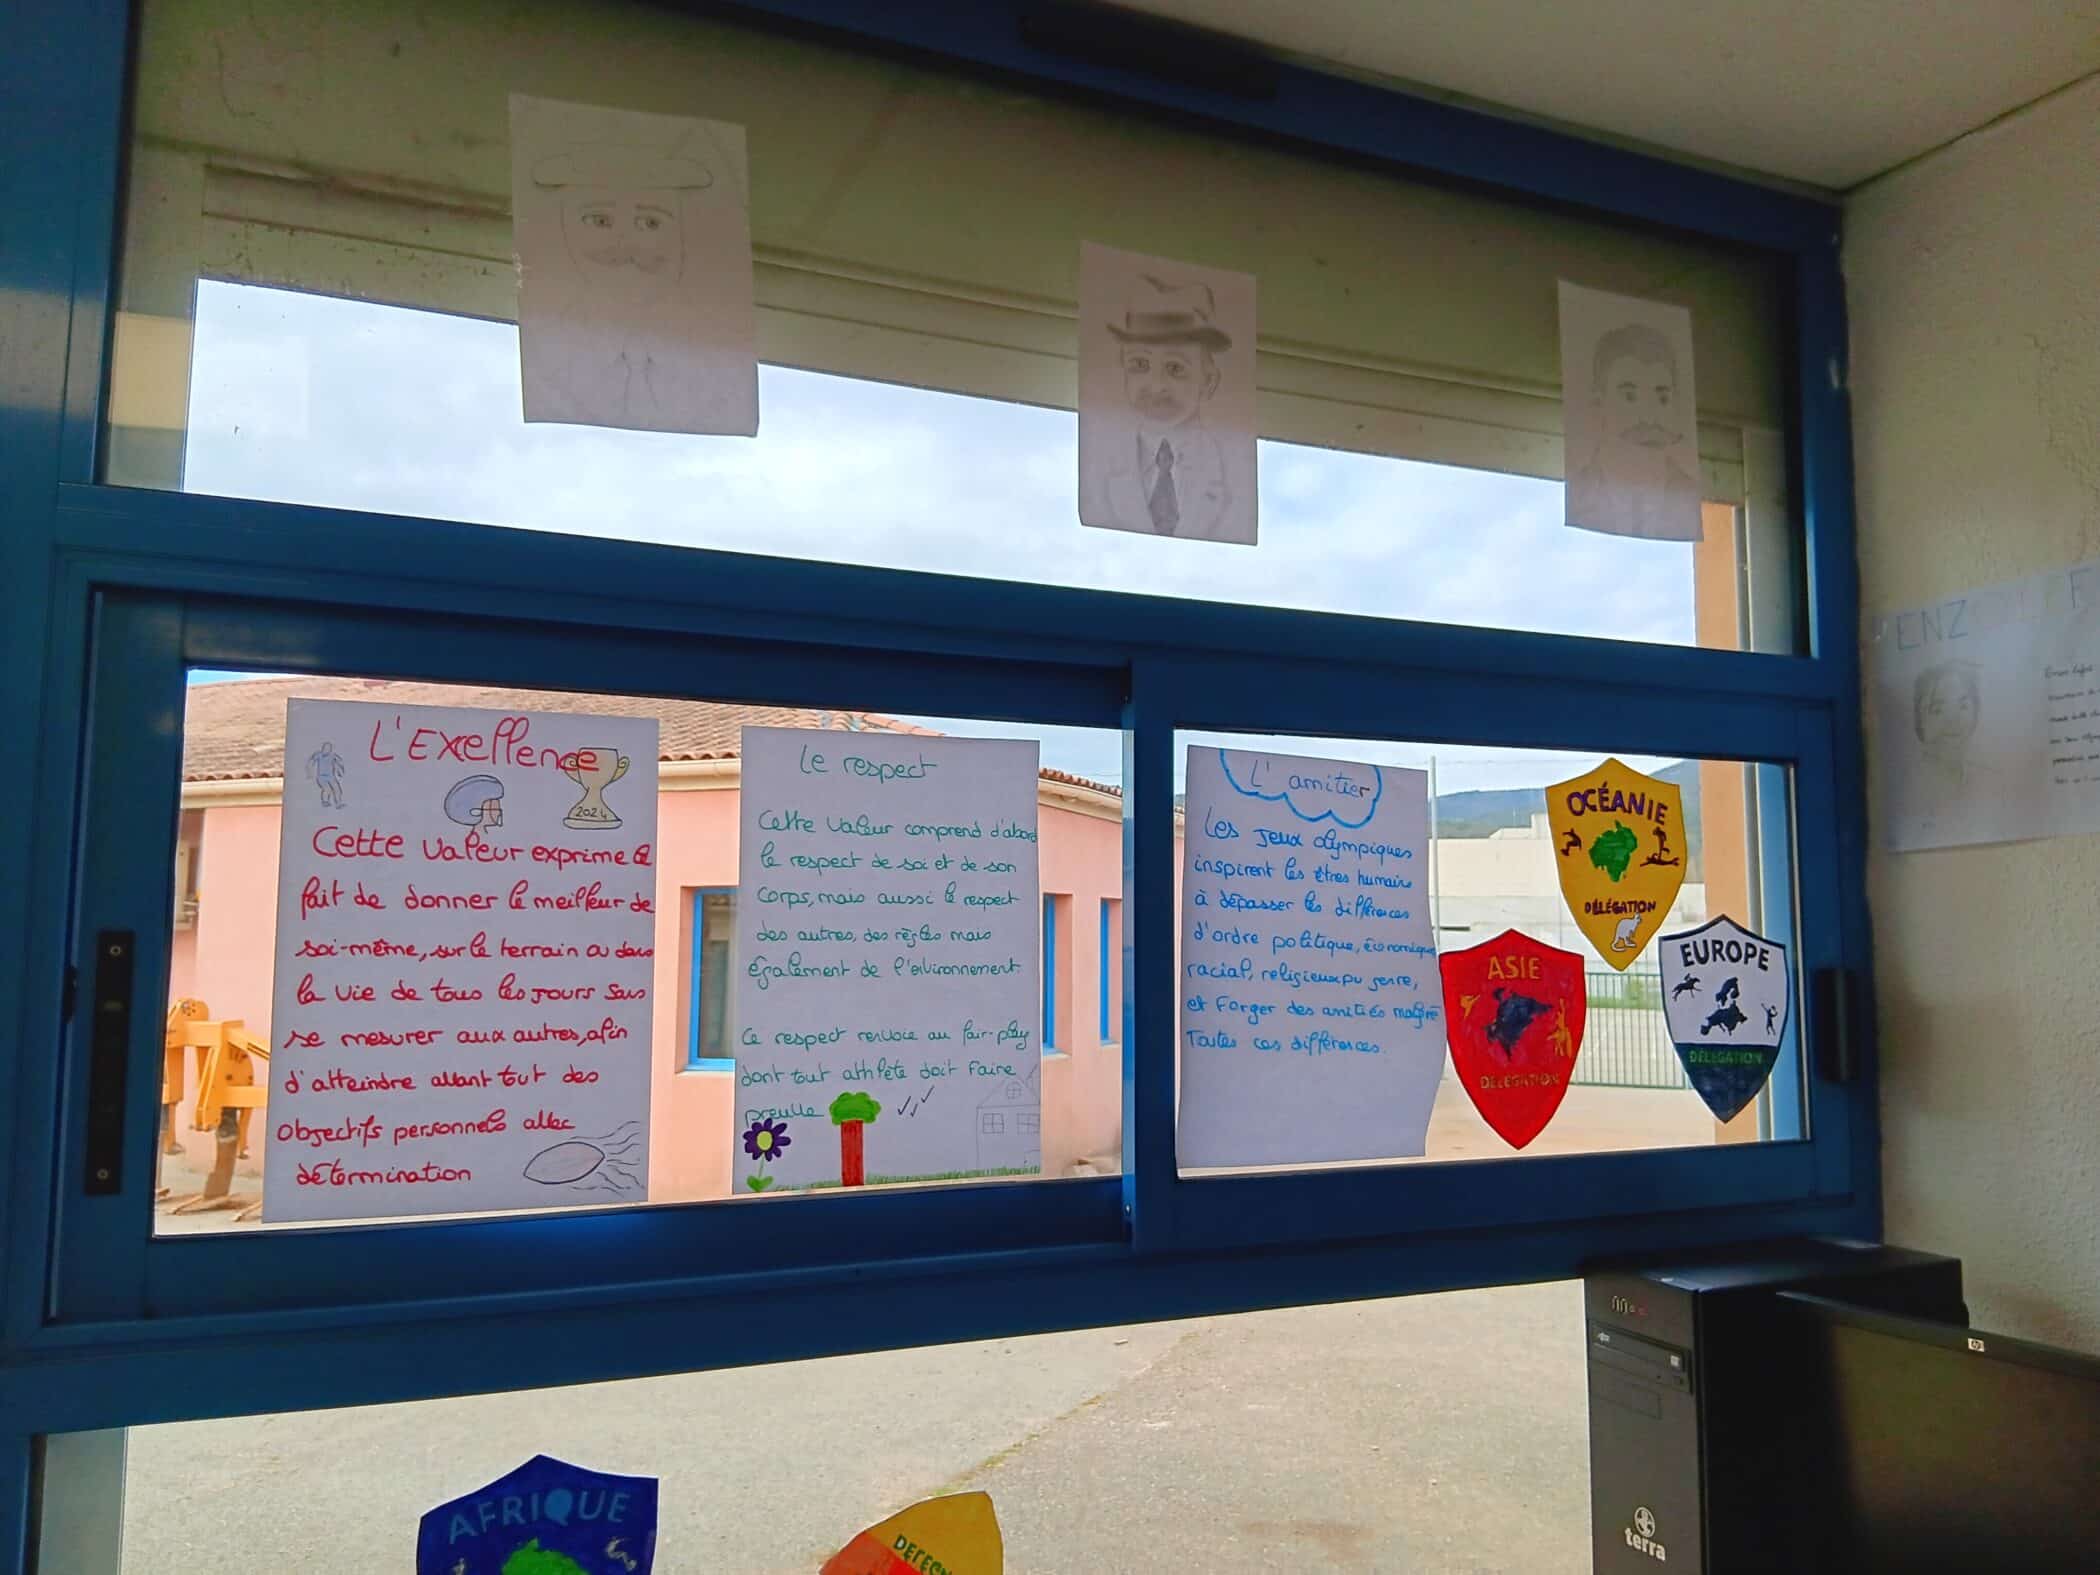 L'Exellence
2024
Cette valeur exprime le
fait de donner le meilleur de
soi-même, sur le terrain ou dans
la vie de tous les jours sans
se mesurer aux autres, afin
d'atteindre avant tout des
objectifs personnels avec
détermination
Le respect
Cette valeur comprend d'abord
le respect de soi et de son
corps, mais aussi le respect
des autres, des règles mais
également de l'environnement.
Ce respect renvoie au fair-play
dont tout athlète doit faire
preuve
L'amitier
Les jeux olympiques
inspirent les êtres humains
à dépasser les différences
d'ordre politique, économique
racial, religieux ou genre,
et forger des amitiés malgré
Toutes ces différences.
OCÉANIE
DÉLÉGATION
ASIE
DÉLÉGATION
EUROPE
DÉLÉGATION
AFRIQUE
ENZ
hp
terra